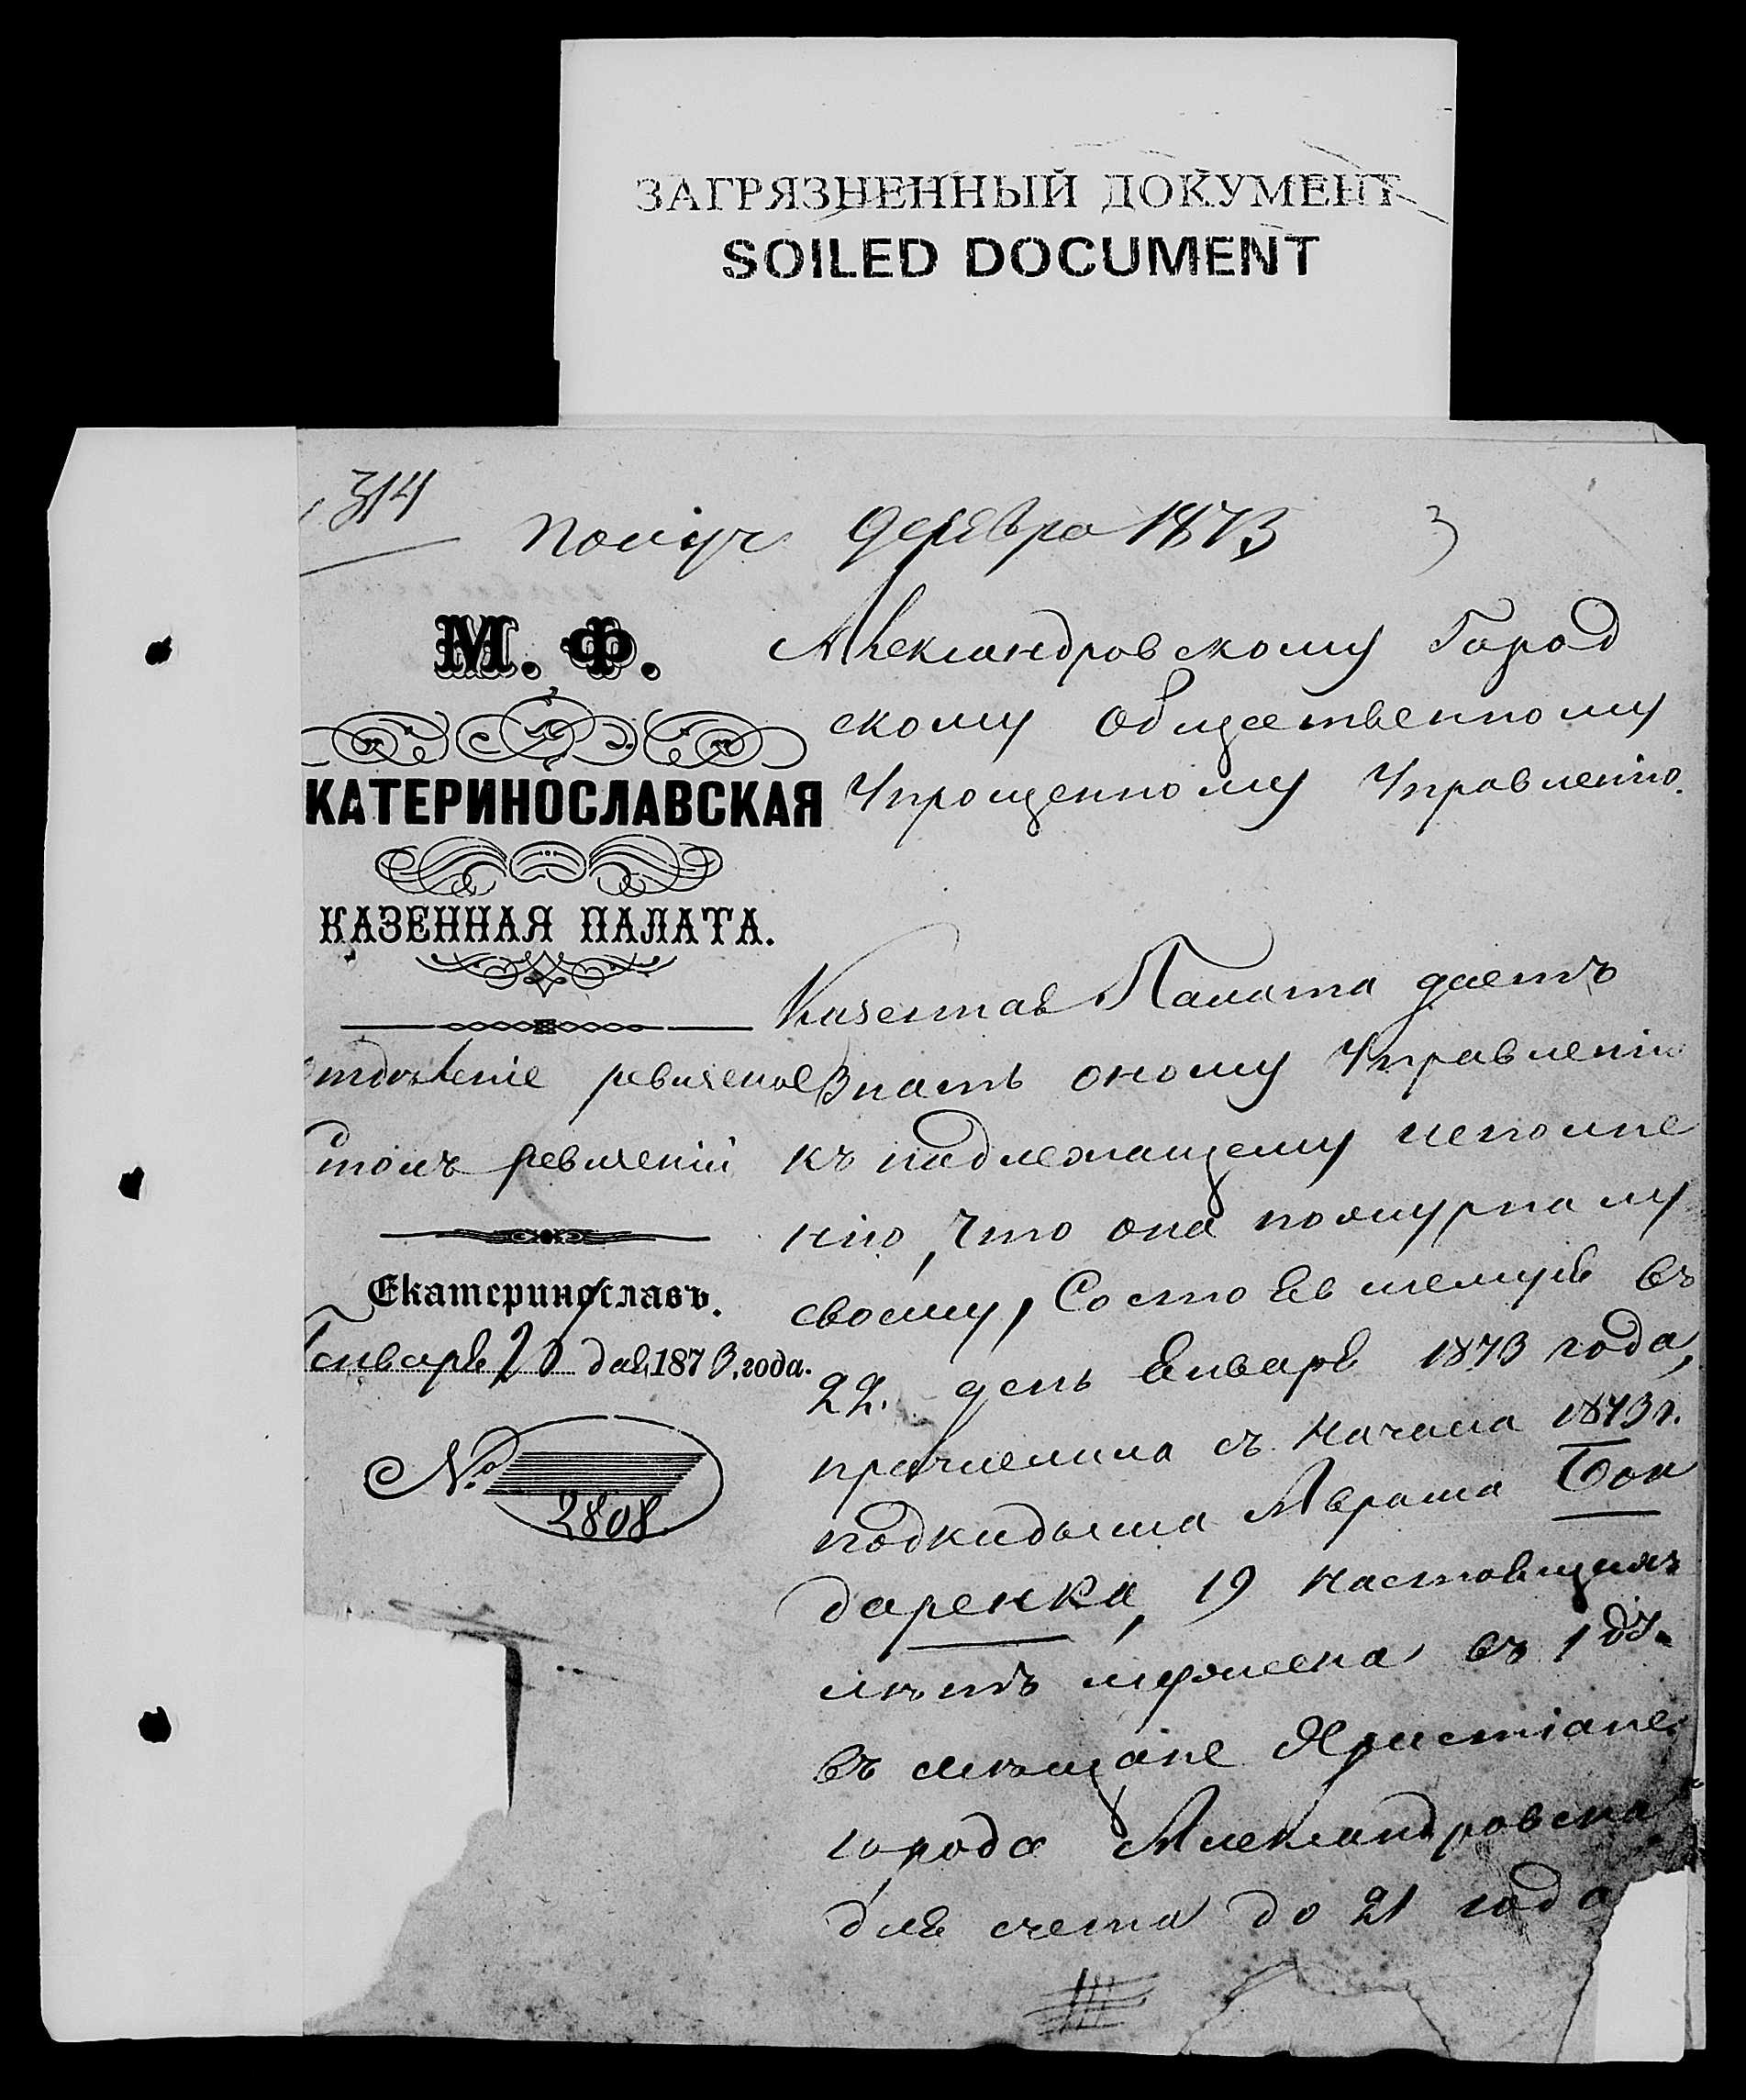 ЗАГРЯЗНЕННЫЙ ДОКУМЕНТ
SOILED DOCUMENT
314
Получ 9 февра 1873
3
М. Ф.
КАТЕРИНОСЛАВСКАЯ
КАЗЕННАЯ ПАЛАТА.
тдѣленіе ревизское
Столъ ревизскій
Екатеринославъ.
Января дня 1873 года.
№ 2808
Александровскому Город
скому общественному
Упрощенному Управленію.
Казенная Палата даетъ
знать оному Управленію
къ надлежащему исполне
нію, что она по журналу
своему, состоявшемуся въ
22 день Января 1873 года,
причислила съ начала 1873 г.
подкидыша Аврама Бон
даренка, 19 настоящихъ
лѣтъ въ 1 д.
въ мѣщане Христіане
города Александровска
для счета до 21 года